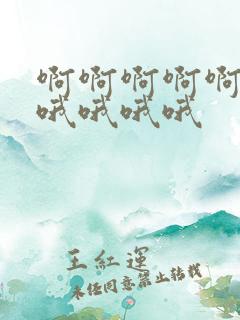 啊啊啊啊啊
哦哦哦哦
王紅運
未经同意禁止转载